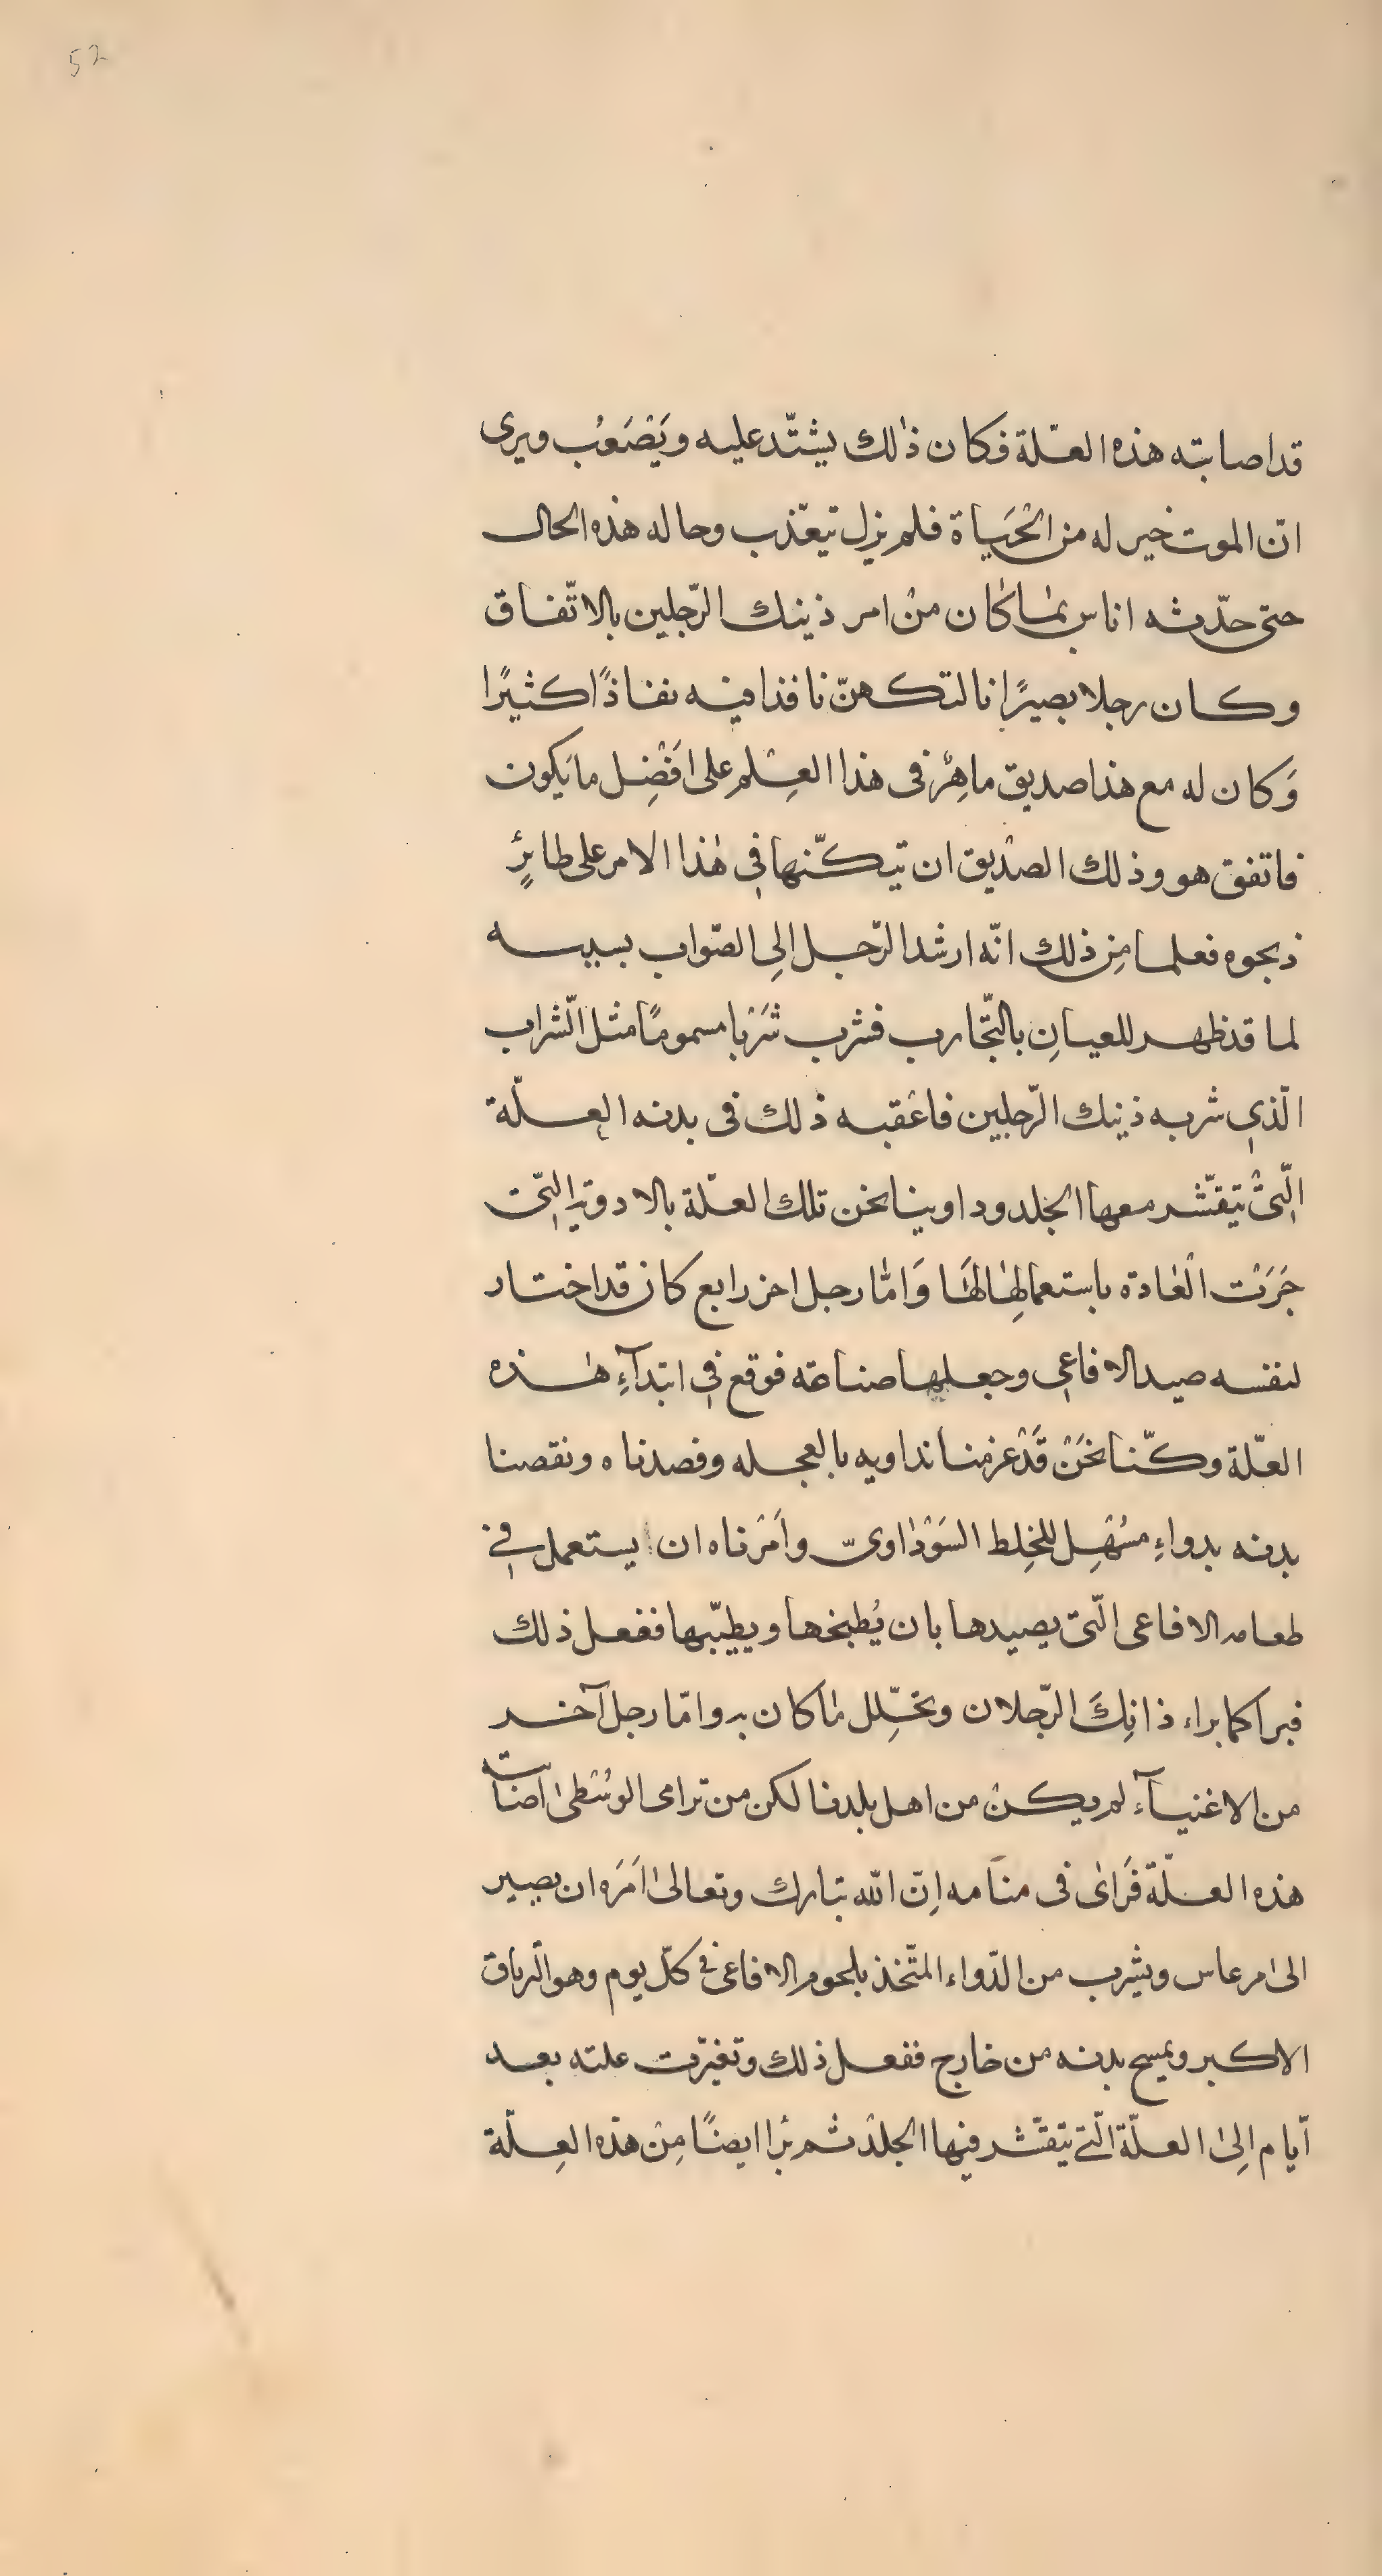 52
قد اصابته هذه العلّة فكان ذٰلك يشتّد عليه ويَصْعَبُ ويرى
انّ الموت خير له من الحَيَاة فلم يزل يتعذّب وحاله هذه الحال
حتى حدّثه اناس بمٰا كٰان مِنْ امر ذينك الرّجلين بالاتّفاق
وكان رجلا بصيرًا بالتكهنّ نافذا فيه نفاذًا كثيرًا
وَكان له مع هذا صديق ماهِرٌ فى هذا العِلم على افَضِل ما يكون
فاتفق هو وذلك الصديق ان تيكّنها فى هٰذا الامر على طائرٍ
ذبحوه فعلما مِن ذلك انّه ارشد الرّجل اِلى الصّواب بسببه
لما قد ظهر للعيانِ بالتّجارب فشرب شَرْبا مسمومًا مثل الشّراب
الّذى شربه ذينك الرّجلين فاعْقبه ذلك فى بدنه العلّة
الّتى يتقّشر معها الجلد وداوينا نحن تلك العلّة بالادوية الّتى
جَرَتْ الْعٰادة باستعمالِهٰا لهَٰا وَامّٰا رجل اخر رابع كان قد اختار
لنفسه صيد الافاعى وجعلها صناعته فوقع فى ابتدآءِ هٰذه
العلّة وكنّا نحَنْ قَدْ عزمنا نداويه بالعجله وفصدناه ونقصنا
بدنه بدواءِ مسُهْلِ للخِلط السَوْدٰاوىّ وامَرْناه ان يستعمل فى
طعامه الافاعى الّتى يصيدها بان يُطبخها ويطيّبها ففعل ذلك
فبرا كما براء ذانِكَ الرّجلان وتحلّل مٰا كان به وامّا رجل آخر
من الاغنيآء لم يكنْ من اهل بلدنا لكن من ترامى الوسُْطىٰ اصابت
هذه العلّة فَراىٰ فى منامه اِنّ الله تبارك وتعالىٰ امَرَه ان يصير
الىٰ مرعاس ويشرب من الدّواء المتّخذ بلحوم الافاعى فى كلّ يوم وهو الترياق
الاكبر ويمسح بدنه من خارج ففعل ذلك وتغيّرت علته بعد
اَيّام اِلىٰ العلّة الّتى يتقّشر فيها الجلد ثم برا ايضًا مِنْ هذه العِلّة